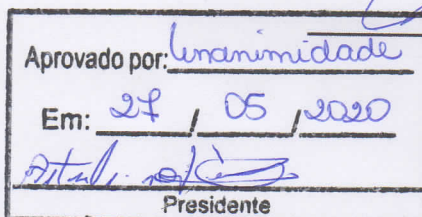 Aprovado por: Unanimidade
Em: 27 / 05 / 2020
Presidente